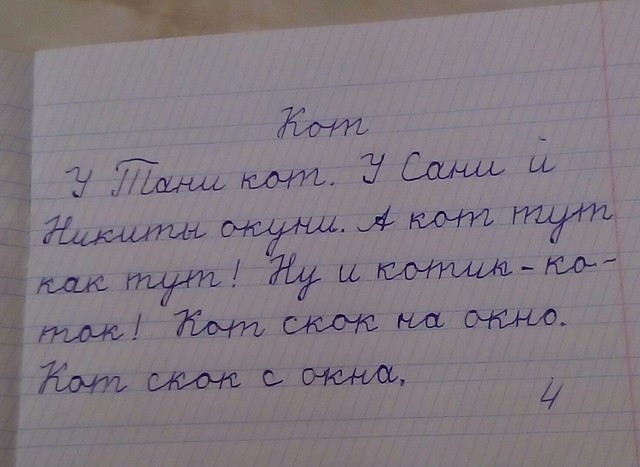 Кот
У Тани кот. У Сани й
Никиты окуни. А кот тут
как тут! Ну и котик-ко-
ток! Кот скок на окно.
Кот скок с окна.
4